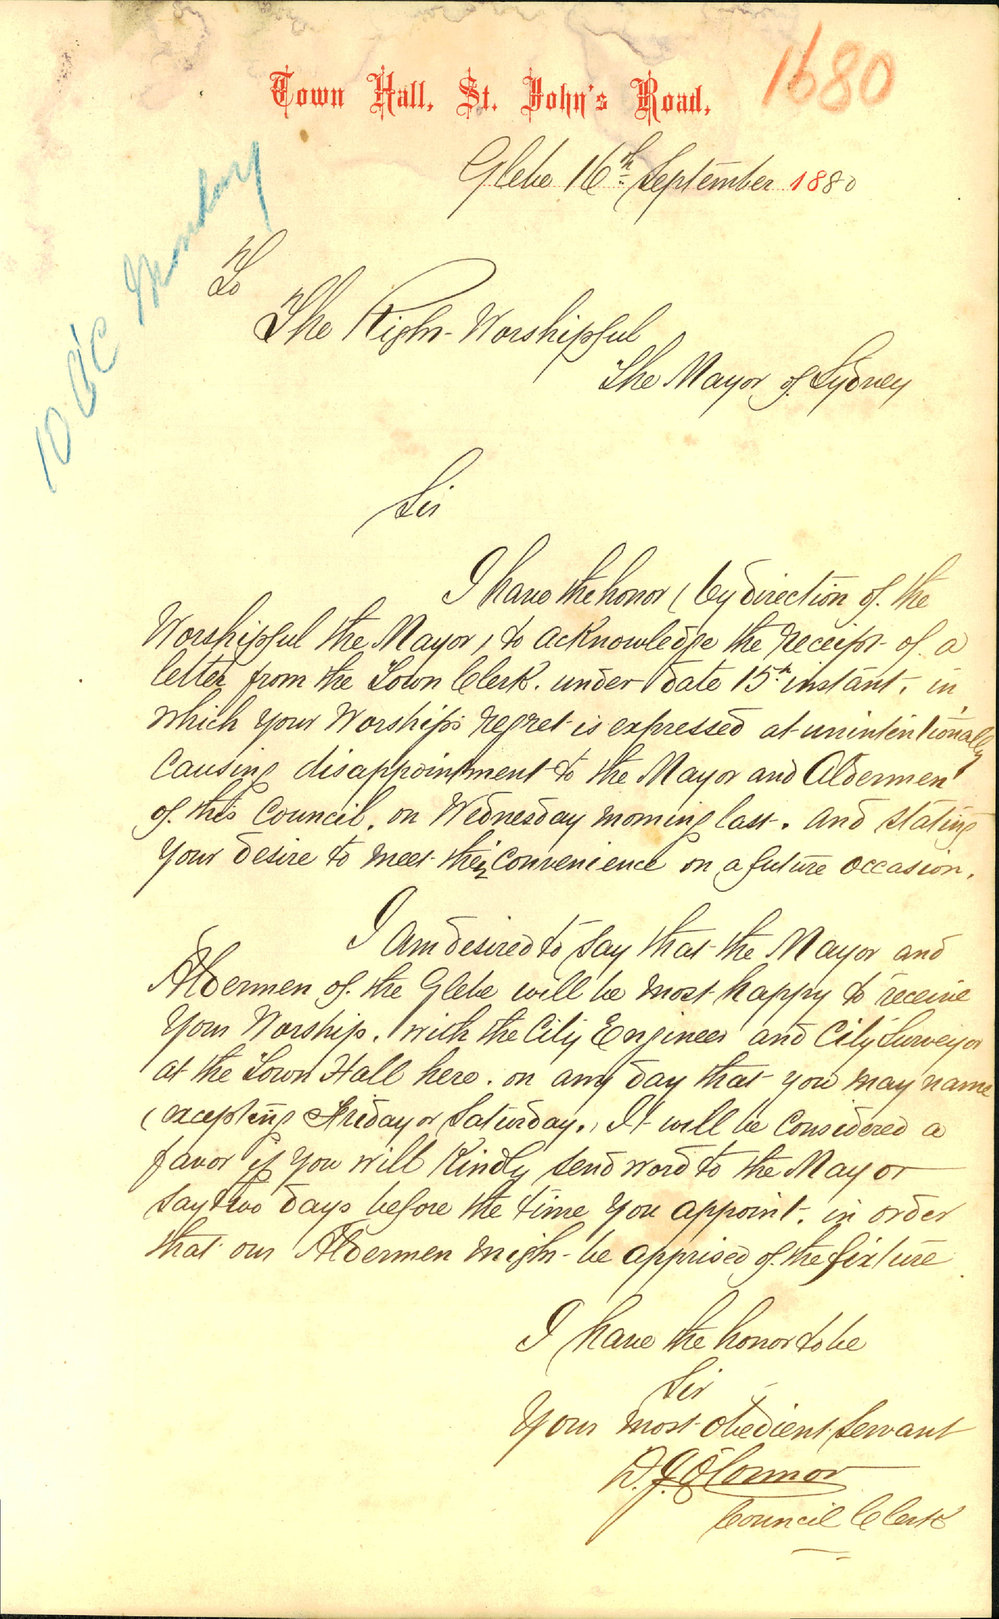 1680
Town Hall, St. John's Road,
Glebe 16th September 1880
10 O'C Monday
To
The Right Worshipful
The Mayor of Sydney
Sir
I have the honor (by direction of the
Worshipful the Mayor) to acknowledge the receipt of a
letter from the Town Clerk. under date 15th instant, in
which your Worship's regret is expressed at unintentionally
causing disappointment to the Mayor and Aldermen
of this Council, on Wednesday morning last. and stating
your desire to meet their convenience on a future occasion.
I am desired to say that the Mayor and
Aldermen of the Glebe will be most happy to receive
Your Worship, with the City Engineer and City Surveyor
at the Town Hall here. on any day that you may name
(excepting Friday or Saturday.) It will be considered a
favor if you will kindly send word to the Mayor
say two days before the time you appoint. in order
that our Aldermen might be apprised of the fixture.
I have the honor to be
Sir
Your most obedient Servant
D. J. O'Connor
Council Clerk